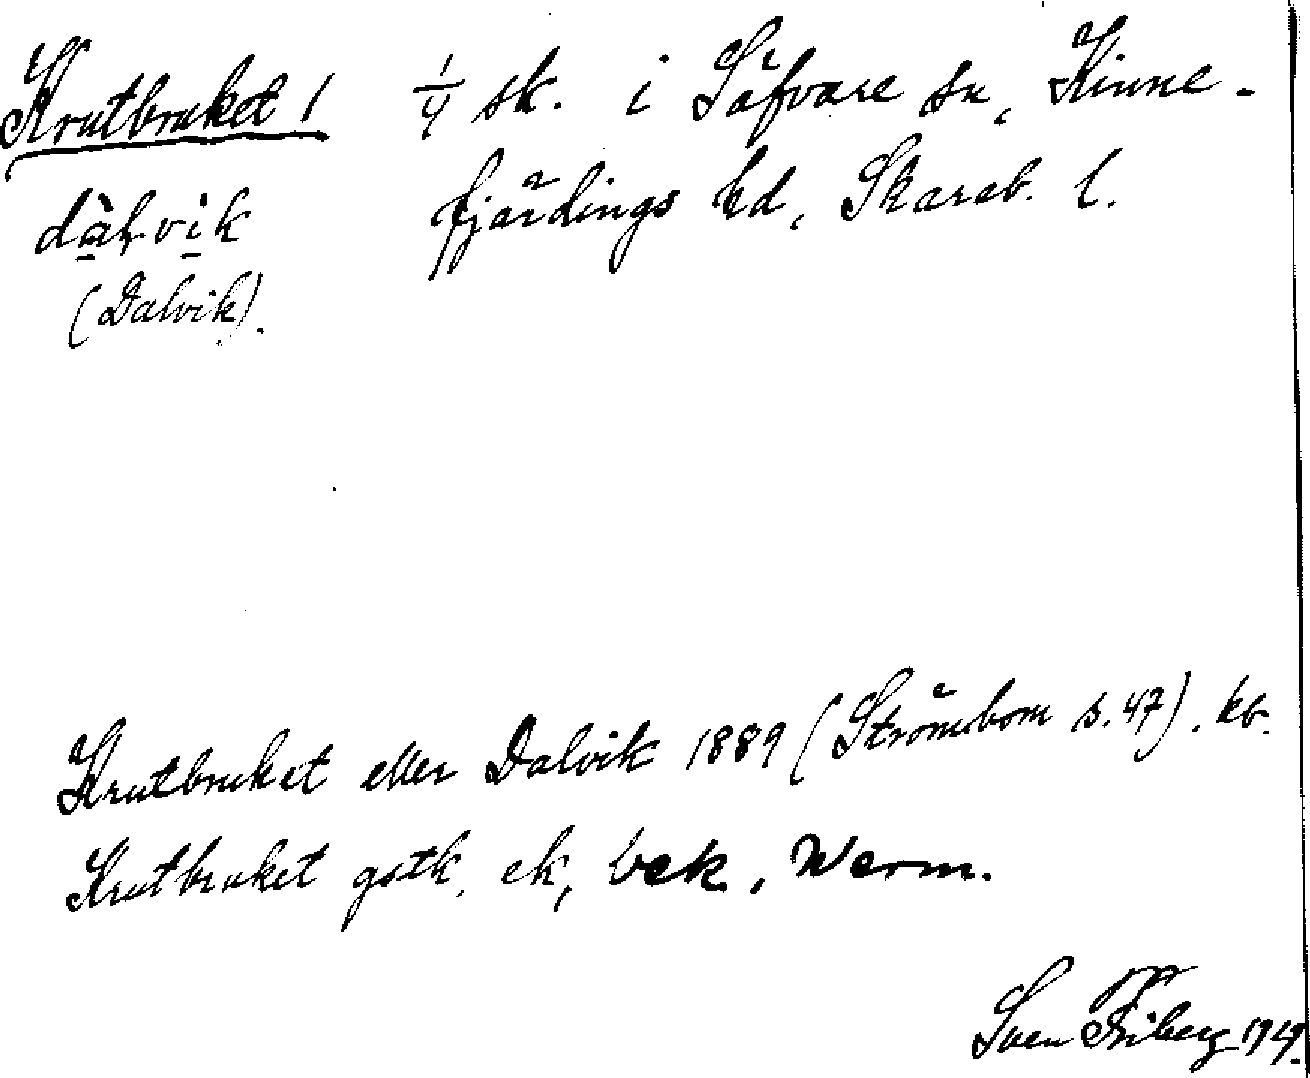 Krutbruket 1 1/4 sk. i Säfvare sn, Kinne-
dàlvìk fjärdings hd, Skarab. l.
(Dalvik).
Krutbruket eller Dalvik 1889 (Strömbom s. 47). kb.
Krutbruket gstk, ek, bek, Werm.
Sven Friberg